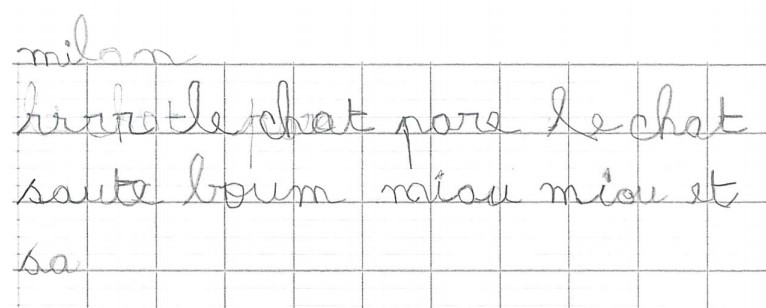 milan
le chat pare le chat
saute boum miau miou et
sa